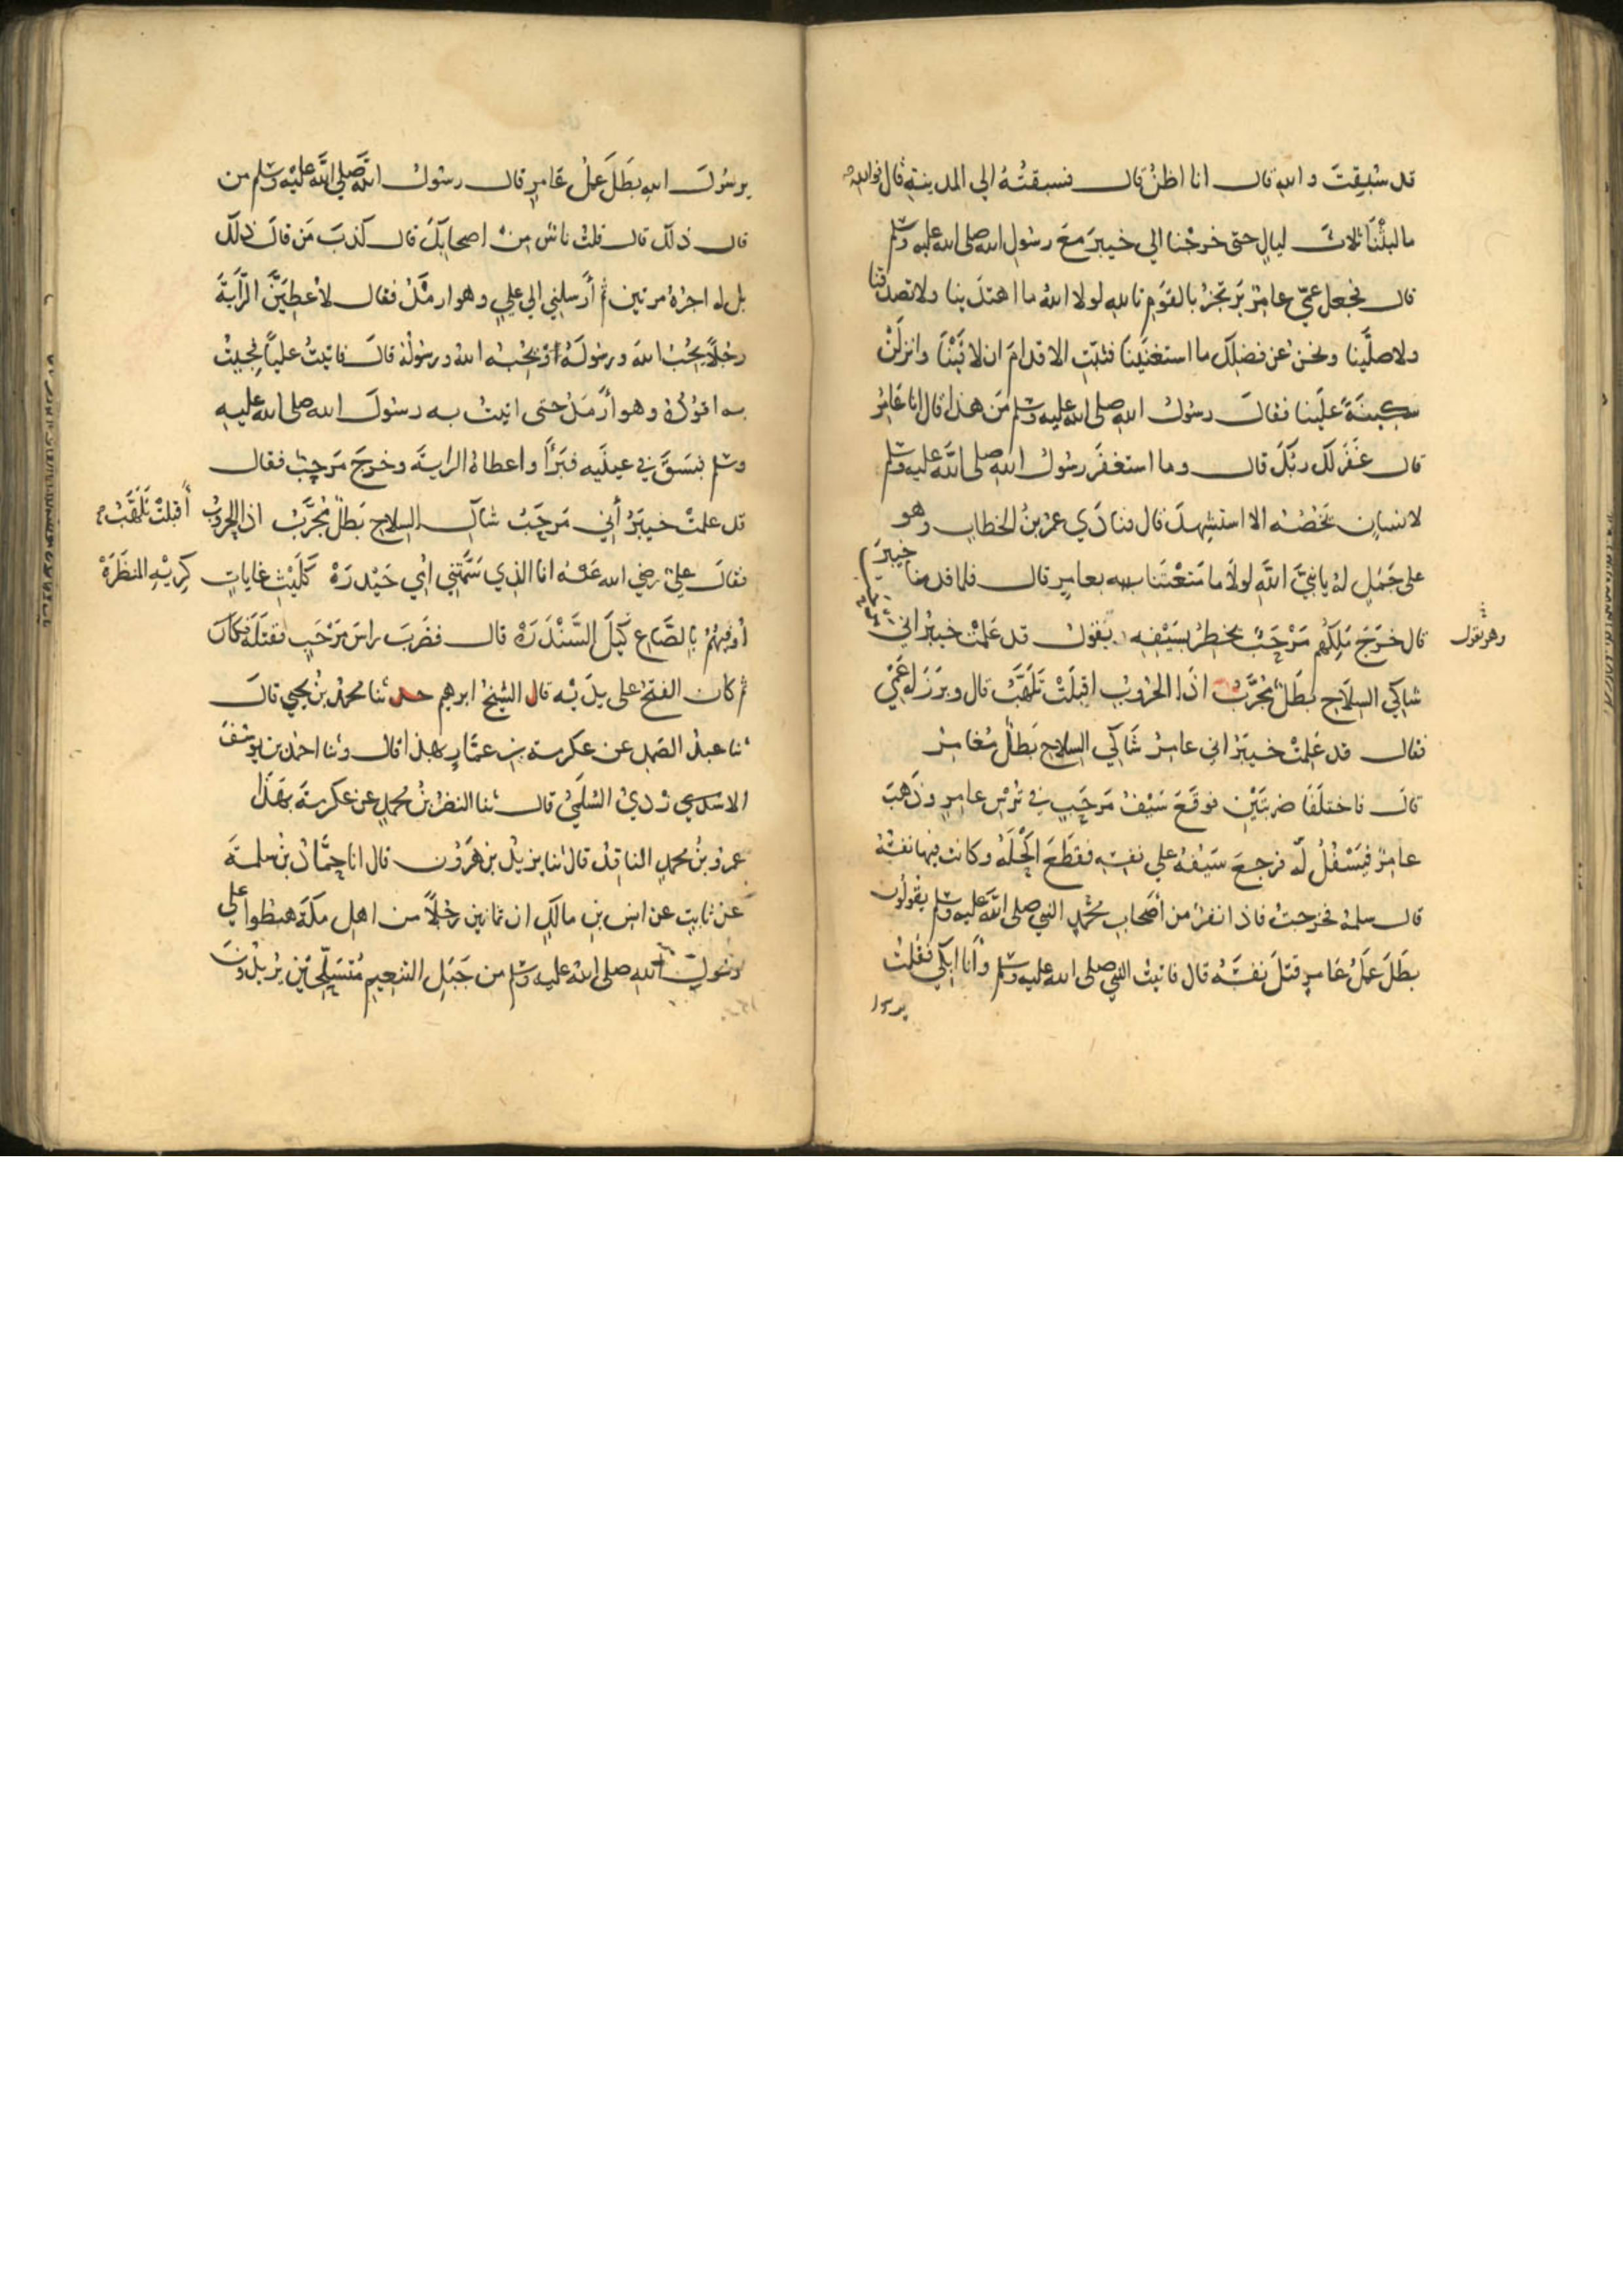 قد سُبِقتَ والله قال انا اظن قال فسبقتُهُ الي المدينةِ قال فوالله
ما لبثْنَا ثلاثَ ليالٍ حتى خرجْنا الي خيبرَ معَ رسُولِ الله صلى الله عليه وسلم
قال فجعل عمّي عامِرٌ يَرتجزُ بالقَومِ تالله لولا اللهُ ما اهتدَينا ولا تصدقنا
ولا صلَّينا ونحن عن فضلِك ما استغنَينا فثبّتِ الاقدامَ ان لاقَينا وانزلَنْ
سَكِينَةً علَينا فقالَ رسُولُ الله صلى الله عليه وسلم مَن هذا قال انا عَامِرٌ
قال غَفَر لك ربُّكَ قال وما استغفَرَ رسُولُ الله صلى الله عليه وسلم
لانسانٍ يَخُصُّهُ الا استشهِدَ قال فنادَي عمرُ بنُ الخطابِ وهو
على جَمَلٍ لهُ يا نبيَّ اللهِ لولَا ما مَتعْتَنا بعامِرٍ قال فلما قدمنا خيبرَ
قال خَرَجَ مَلِكُهم مَرْحَبٌ يخطِرُ بسَيْفِهِ يقولُ قد عَلِمَتْ خيبرُ اني
وهو يقول
شاكِي السِلَاحِ بطَلٌ مُجَرَّبٌ اذَا الحرُوبُ اقبلَتْ تَلَهَّبُ قال وبرَزَ له عَمِّي
فقال قد عَلِمَتْ خيبَرُ اني عامِرٌ شَاكِي السلاحِ بَطلٌ مُغامِرٌ
قالَ فاختلَفَا ضربتَيْنِ فوقَعَ سَيْفُ مَرحَبٍ في تُرْسِ عامِرٍ وذَهَبَ
عامِرٌ يَسْفُلُ لَه فرجعَ سَيْفُهُ علي نفسِهِ فقطَعَ اكْحَلَهُ وكانت فيها نفسُهُ
قال سلمةُ فخرجتُ فاذا نفرٌ من أصحابِ محمَّدٍ النبي صلى الله عليه وسلم يقُولُون
بطَلَ عَمَلُ عَامِرٍ قتلَ نفسَهُ قال فاتيتُ النبي صلى الله عليه وسلم وأَنا ابكي فقُلتُ
يرسول
يرسُولَ اللهِ بطَلَ عَملُ عَامِرٍ قال رسُولُ الله صلي الله عليه وسلم من
قال ذلك قال قلتُ ناسٌ مِنْ اصحابِكَ قال كذبَ مَن قالَ ذلكَ
بل له اجرُهُ مرتين ثم أَرسلني الي عليٍ وهو ارمَدُ فقال لأُعطِيَنَّ الرَّايَةَ
رجُلاً يحبُّ اللهَ ورسُولَهُ اوْ يحبُّهُ اللهُ ورسُولُهُ قالَ فاتيتُ علياً فجِيتُ
به اقوُدُهُ وهو أَرمَدُ حتى اتيتُ به رسُولَ الله صلى الله عليهِ
وسلم فبَسَقَ في عينَيه فبَرَأَ واعطاهُ الرايةَ وخرجَ مَرحبٌ فقال
قد علمتْ خيبَرُ أني مَرحَبُ شاكِ السِلاحِ بَطلٌ مُجَرَّبُ اذا الحروبُ أَقبلتْ تَلَهَّبُ
فقالَ عليٌّ رضي الله عَنْهُ انا الذي سَمَّتني امِّي حَيْدرَهْ كَلَيْثِ غاباتٍ كرِيْهِ المَنظَرَهْ
أُوفيهُمُ بالصَّاعِ كَيْلَ السَّنْدَرَهْ قال فضَربَ راسَ مَرْحَبٍ فقتَلَهُ فكانَ
ثم كان الفتحُ على يدَيْه قال الشيخُ ابرهيم حدثنا محمدُ بنُ يحيي قالَ
ثنا عبدُ الصَمدِ عن عكرمة بن عمَّارٍ بهذا قال وثنا احمدُ بن يُوسُفَ
الازدي السُلَميُّ قال ثنا النضرُ بنُ محمدٍ عن عكرمةَ بهَذا
عمرُو بنُ محمدٍ الناقِدُ قال ثنا يزيدُ بن هَرُون قال انا حمَّادُ بنُ سلمةَ
عن ثابتٍ عن انسِ بنِ مالكٍ ان ثمانين رجُلاً من اهلِ مكةَ هبطُوا علي
رسُولِ الله صلى الله عليه وسلم من جَبَلِ التنعِيمِ مُتسَلِّحِيْنَ يُريدُونَ